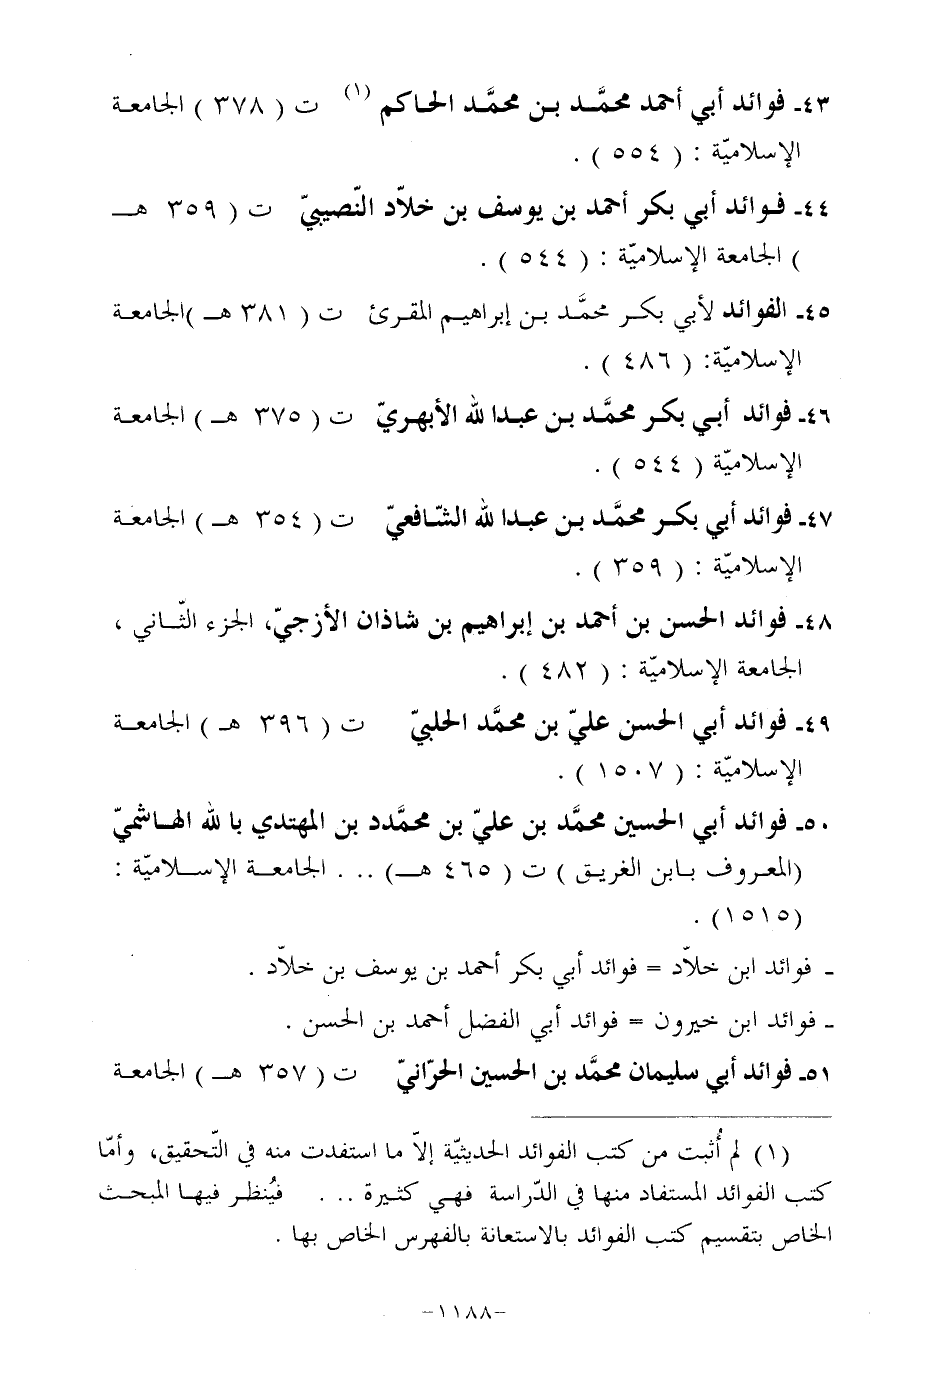 ٤٣ـ فوائد أبي أحمد محمَّد بن محمَّد الحاكم (١) ت ( ٣٧٨ ) الجامعة
الإسلاميّة : ( ٥٥٤ ) .
٤٤ـ فوائد أبي بكر أحمد بن يوسف بن خلاّد النّصيبيّ ت ( ٣٥٩ هـ
) الجامعة الإسلاميّة : ( ٥٤٤ ) .
٤٥ـ الفوائد لأبي بكر محمَّد بن إبراهيم المقرئ ت ( ٣٨١ هـ )الجامعة
الإسلاميّة: ( ٤٨٦ ) .
٤٦ـ فوائد أبي بكر محمَّد بن عبدا لله الأبهريّ ت ( ٣٧٥ هـ ) الجامعة
الإسلاميّة ( ٥٤٤ ) .
٤٧ـ فوائد أبي بكر محمَّد بن عبدا لله الشّافعيّ ت ( ٣٥٤ هـ ) الجامعة
الإسلاميّة : ( ٣٥٩ ) .
٤٨ـ فوائد الحسن بن أحمد بن إبراهيم بن شاذان الأزجيّ، الجزء الثّاني ،
الجامعة الإسلاميّة : ( ٤٨٢ ) .
٤٩ـ فوائد أبي الحسن عليّ بن محمَّد الحلبيّ ت ( ٣٩٦ هـ ) الجامعة
الإسلاميّة : ( ١٥٠٧ ) .
٥٠ـ فوائد أبي الحسين محمَّد بن عليّ بن محمَّدد بن المهتدي با لله الهاشميّ
(المعروف بابن الغريق ) ت ( ٤٦٥ هـ) .. . الجامعة الإسلاميّة :
(١٥١٥) .
ـ فوائد ابن خلاّد = فوائد أبي بكر أحمد بن يوسف بن خلاّد .
ـ فوائد ابن خيرون = فوائد أبي الفضل أحمد بن الحسن .
٥١ـ فوائد أبي سليمان محمَّد بن الحسين الحرّانيّ ت ( ٣٥٧ هـ ) الجامعة
(١) لم أُثبت من كتب الفوائد الحديثيّة إلاّ ما استفدت منه في التّحقيق، وأمّا
كتب الفوائد المستفاد منها في الدّراسة فهي كثيرة .. . فيُنظر فيها المبحث
الخاص بتقسيم كتب الفوائد بالاستعانة بالفهرس الخاص بها .
-١١٨٨-